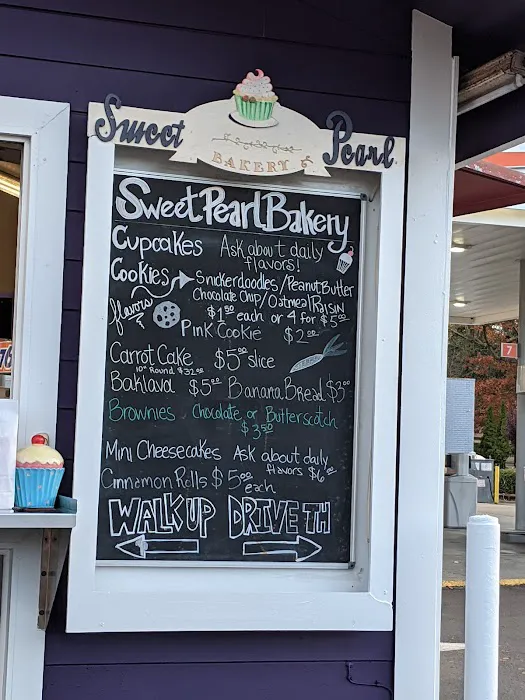 Sweet Pearl
BAKERY
Sweet Pearl Bakery
Cupcakes Ask about daily
flavors!
Cookies Snickerdoodles/Peanut Butter
Chocolate Chip/Oatmeal Raisin
flavors $1.50 each or 4 for $5.00
Pink Cookie $2.00
Carrot Cake $5.00 slice
10" Round $32.00
Baklava $5.00 Banana Bread $3.00
Brownies . Chocolate or Butterscotch
$3.50
Mini Cheesecakes Ask about daily
flavors $6.00
Cinnamon Rolls $5.00 each
WALK UP DRIVE TH
7